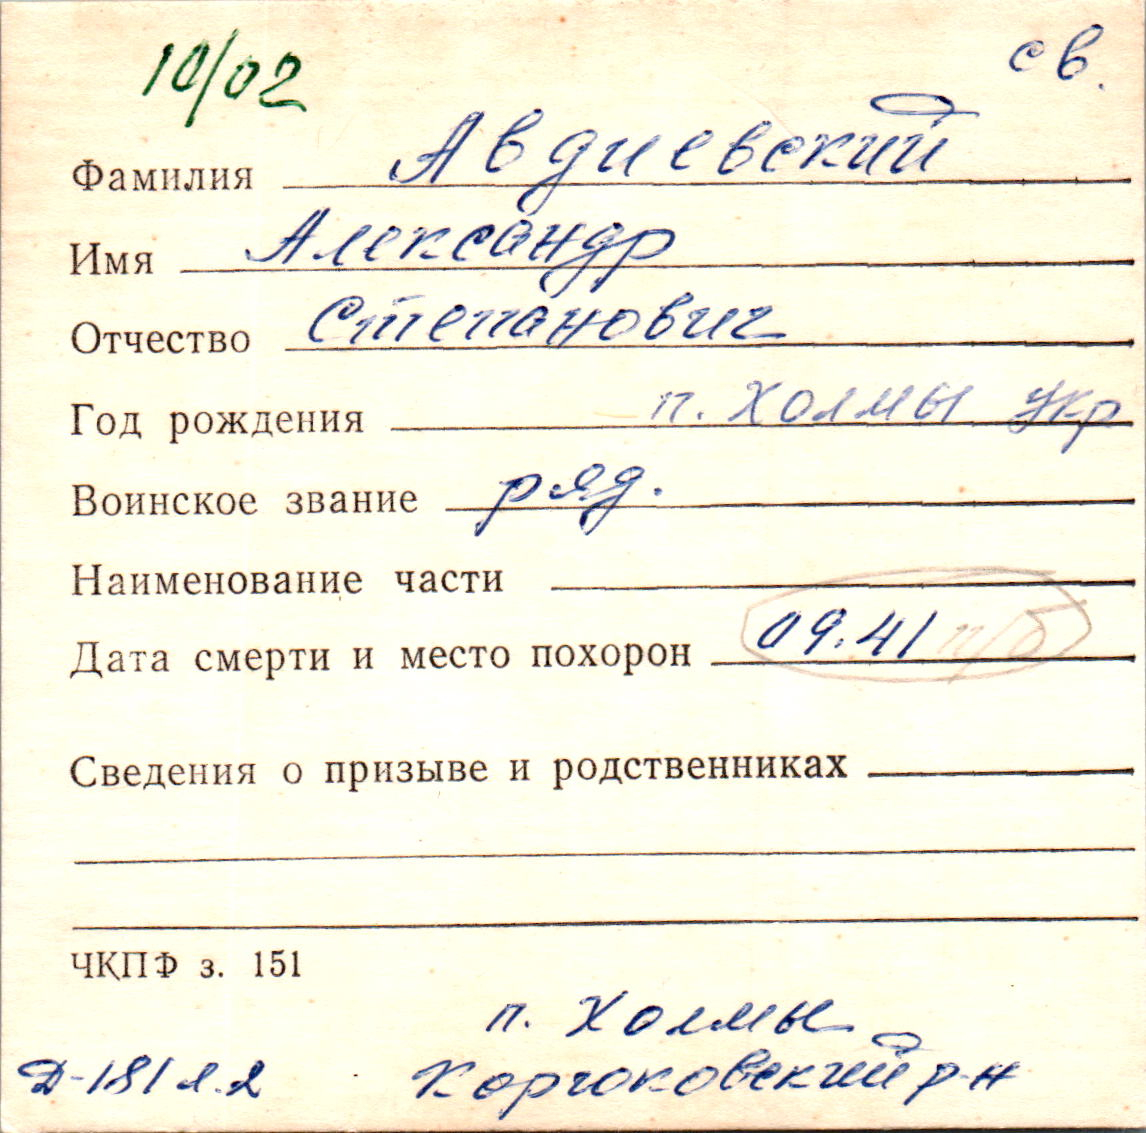 10/02 св.
Фамилия Авдиевский
Имя Александр
Отчество Степанович
Год рождения п. Холмы Укр
Воинское звание ряд.
Наименование части
Дата смерти и место похорон 09.41 п/б
Сведения о призыве и родственниках
ЧКПФ з. 151
п. Холмы
Д-181 л.2 Корюковский р-н